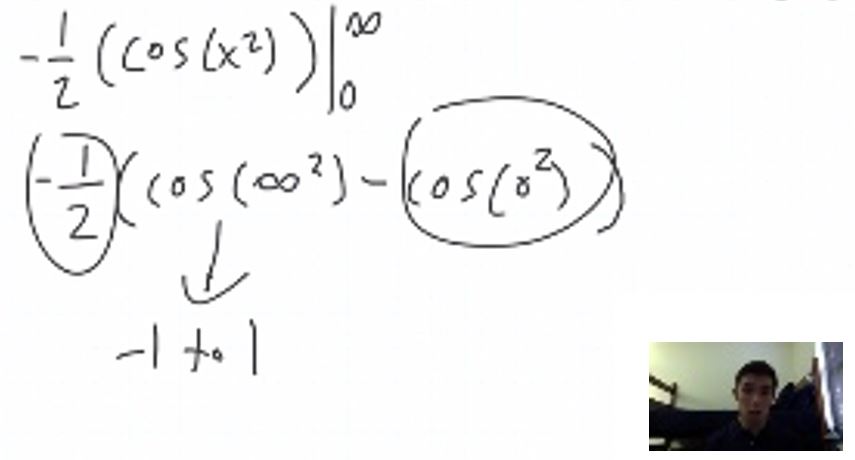 -1/2 (cos(x²))|₀^∞
-1/2 (cos(∞²) - cos(0²))
-1 to 1